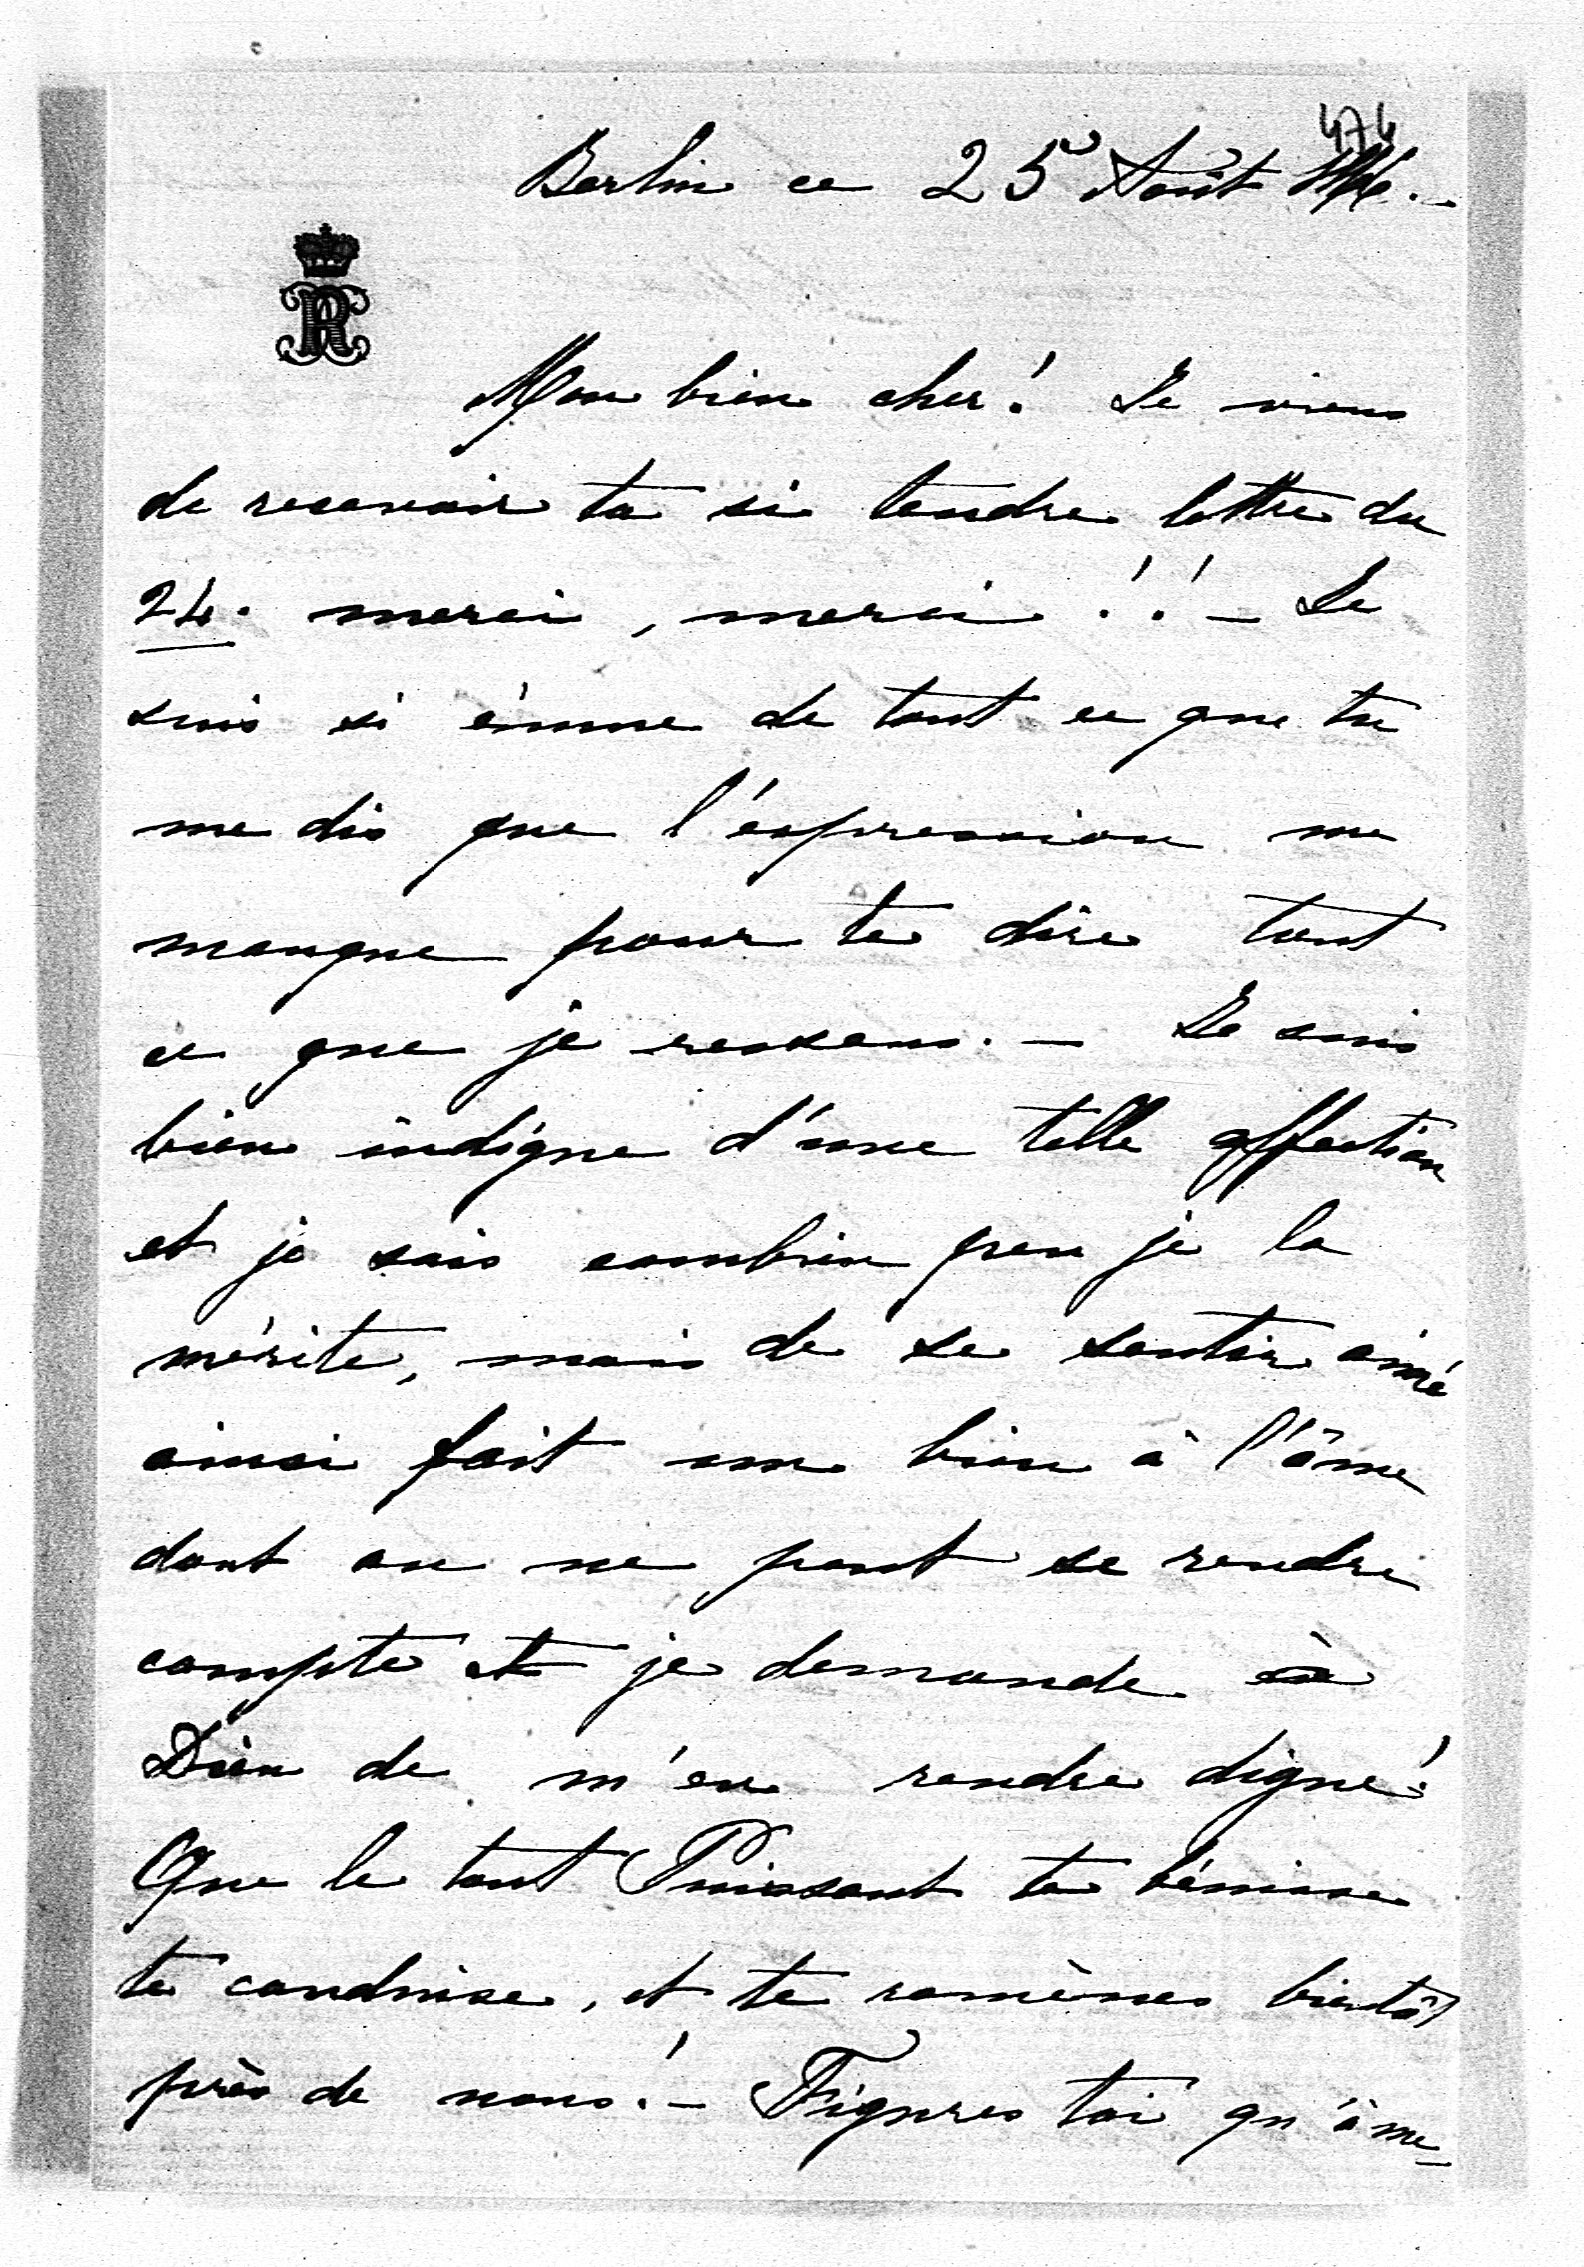 474
Berlin ce 25 Août
R
Mon bien cher! Je viens
de recevoir ta si tendre lettre du
24. merci, merci!! – Je
suis si émue de tout ce que tu
me dis que l'expression me
manque pour te dire tout
ce que je ressens. – Je suis
bien indigne d'une telle affection
et je sais combien peu je la
mérite, mais de se sentir aimé
ainsi fait un bien à l'âme
dont on ne peut se rendre
compte et je demande à
Dieu de m'en rendre digne!
Que le tout Puissant te bénisse
te conduise, et te ramènes bientôt
près de nous! – Figures toi qu'à me